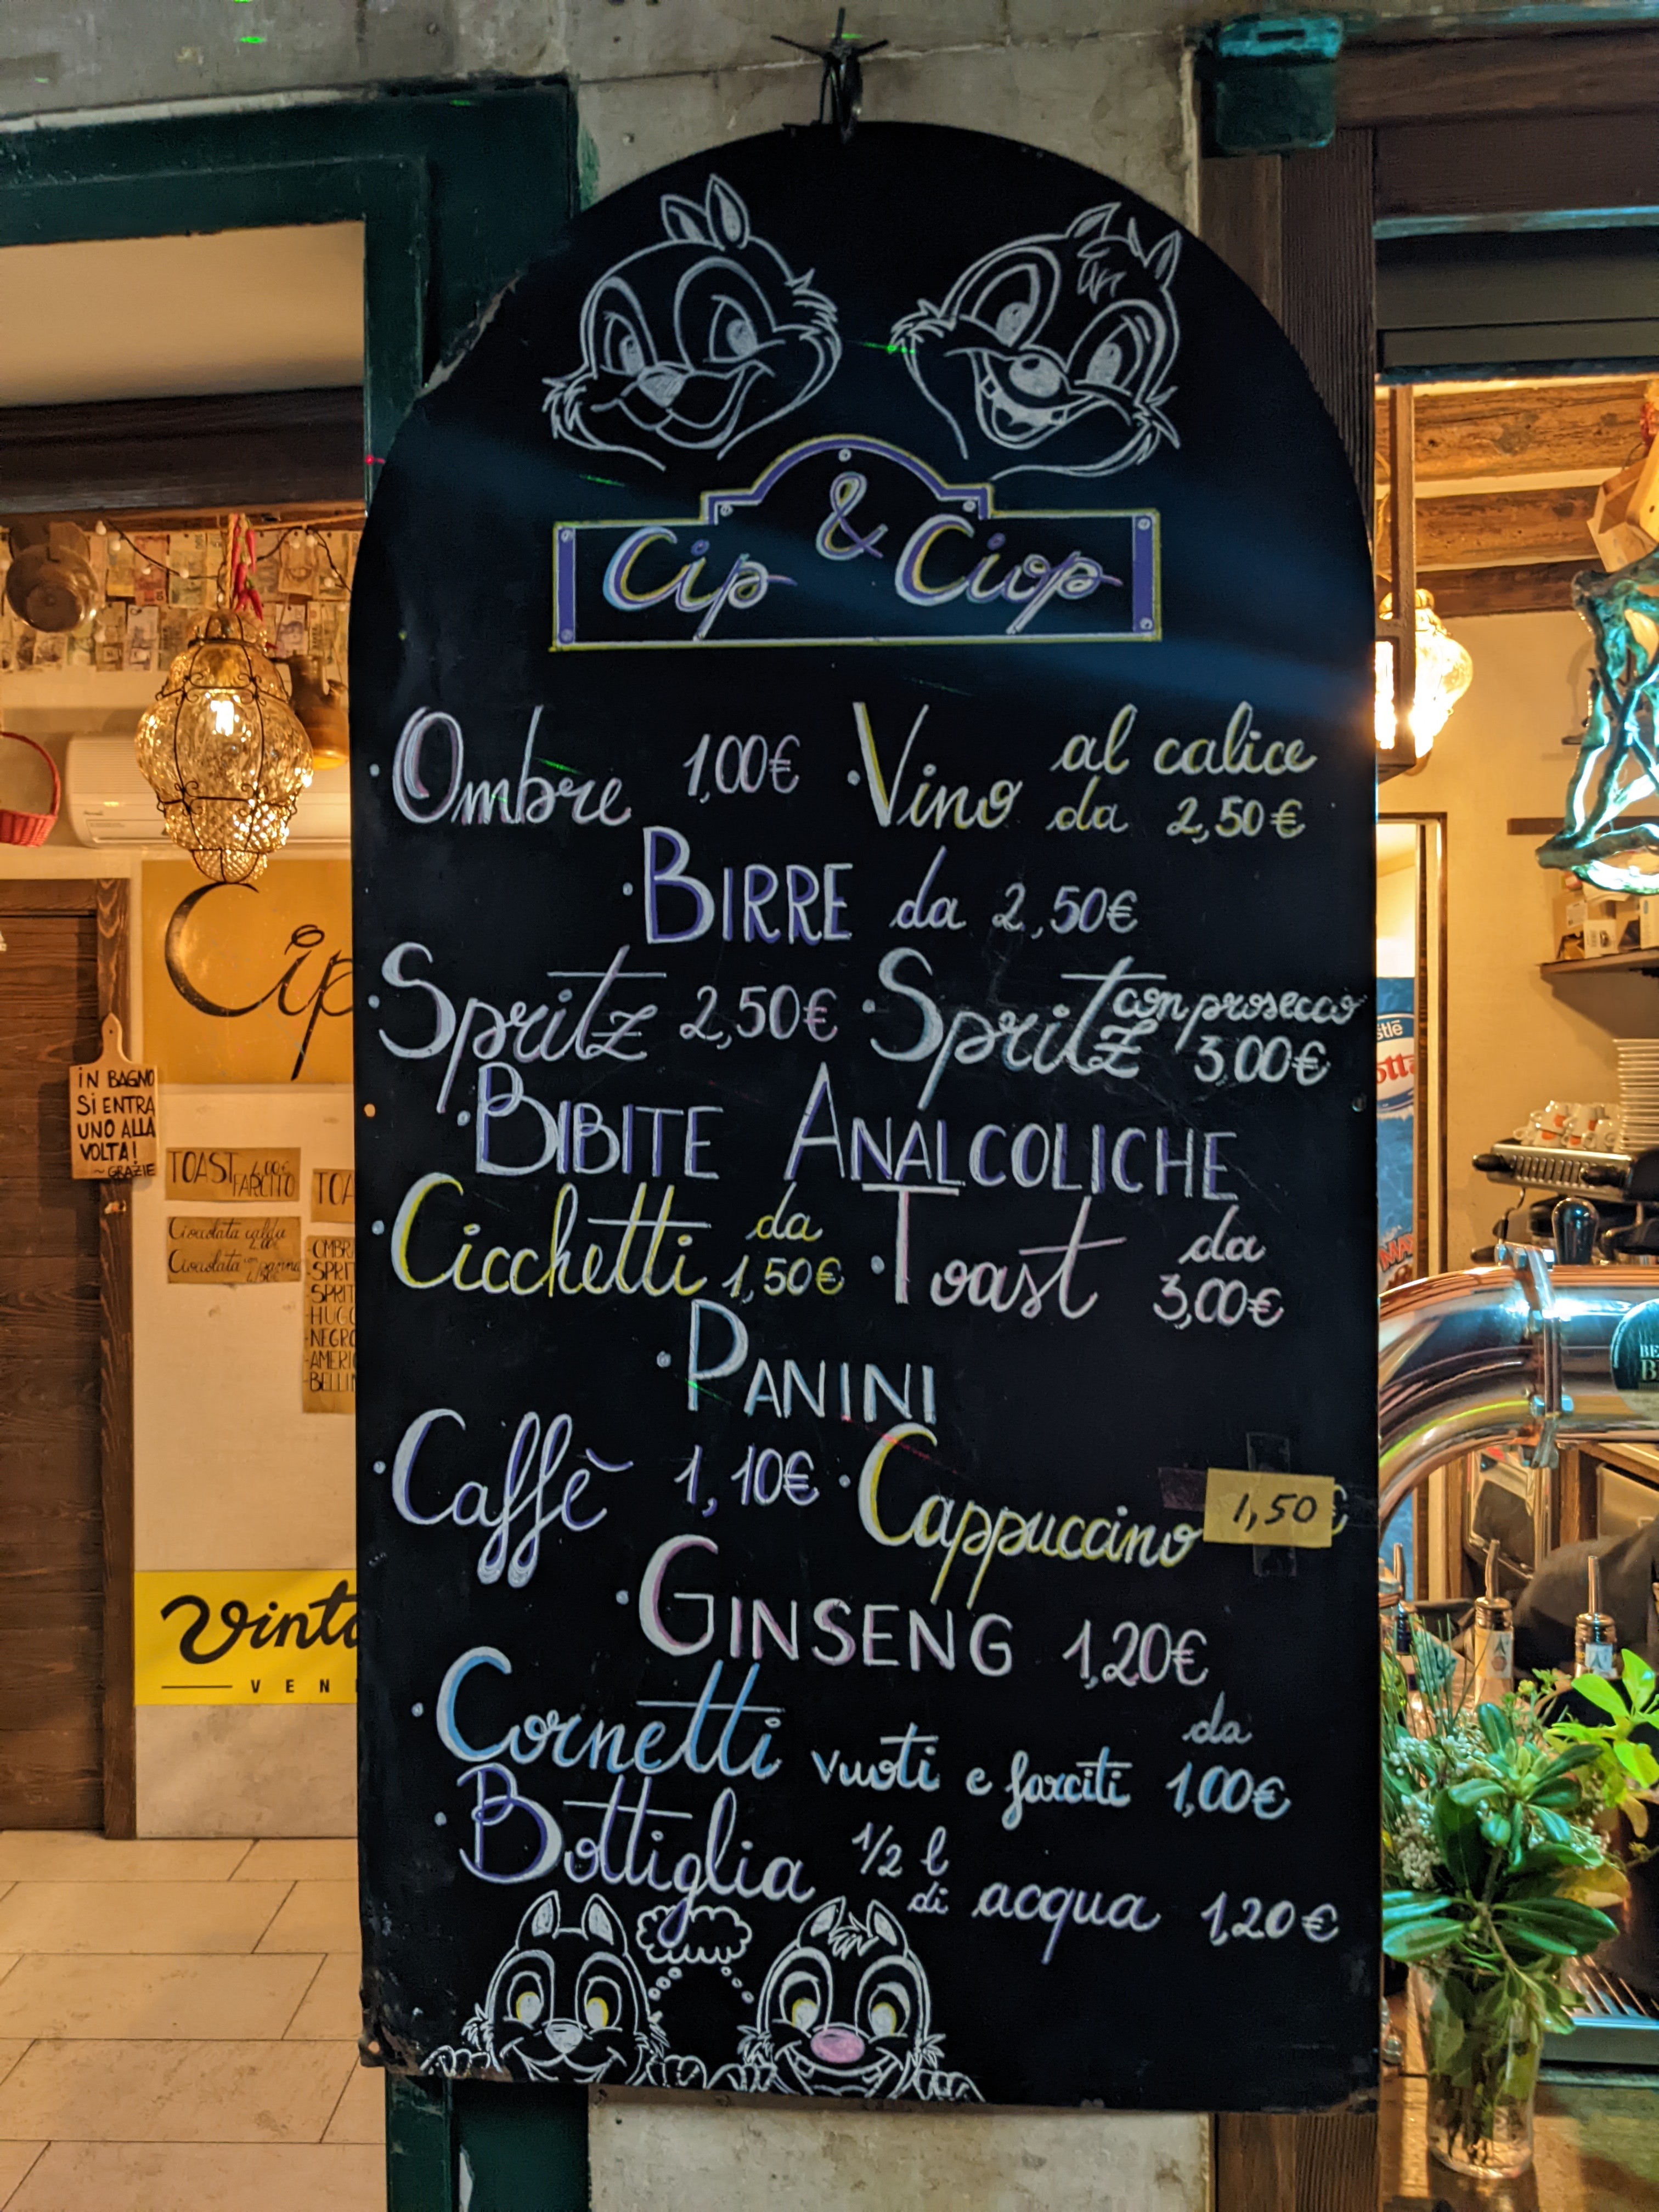 Cip & Ciop
· Ombre 1,00€ · Vino al calice da 2,50€
· BIRRE da 2,50€
· Spritz 2,50€ · Spritz con prosecco 3,00€
· BIBITE ANALCOLICHE
· Cicchetti da 1,50€ · Toast da 3,00€
· PANINI
· Caffè 1,10€ · Cappuccino 1,50 €
· GINSENG 1,20€
· Cornetti vuoti e farciti da 1,00€
· Bottiglia 1/2 l di acqua 1,20€
Cip
IN BAGNO
SI ENTRA
UNO ALLA
VOLTA!
~GRAZIE
TOAST FARCITO 4,00€
TOA
Cioccolata calda
Cioccolata con panna
-OMBR
-SPRIT
-SPRIT
-HUGO
-NEGRO
-AMERI
-BELLIN
Vinta
VEN
stlé
otta